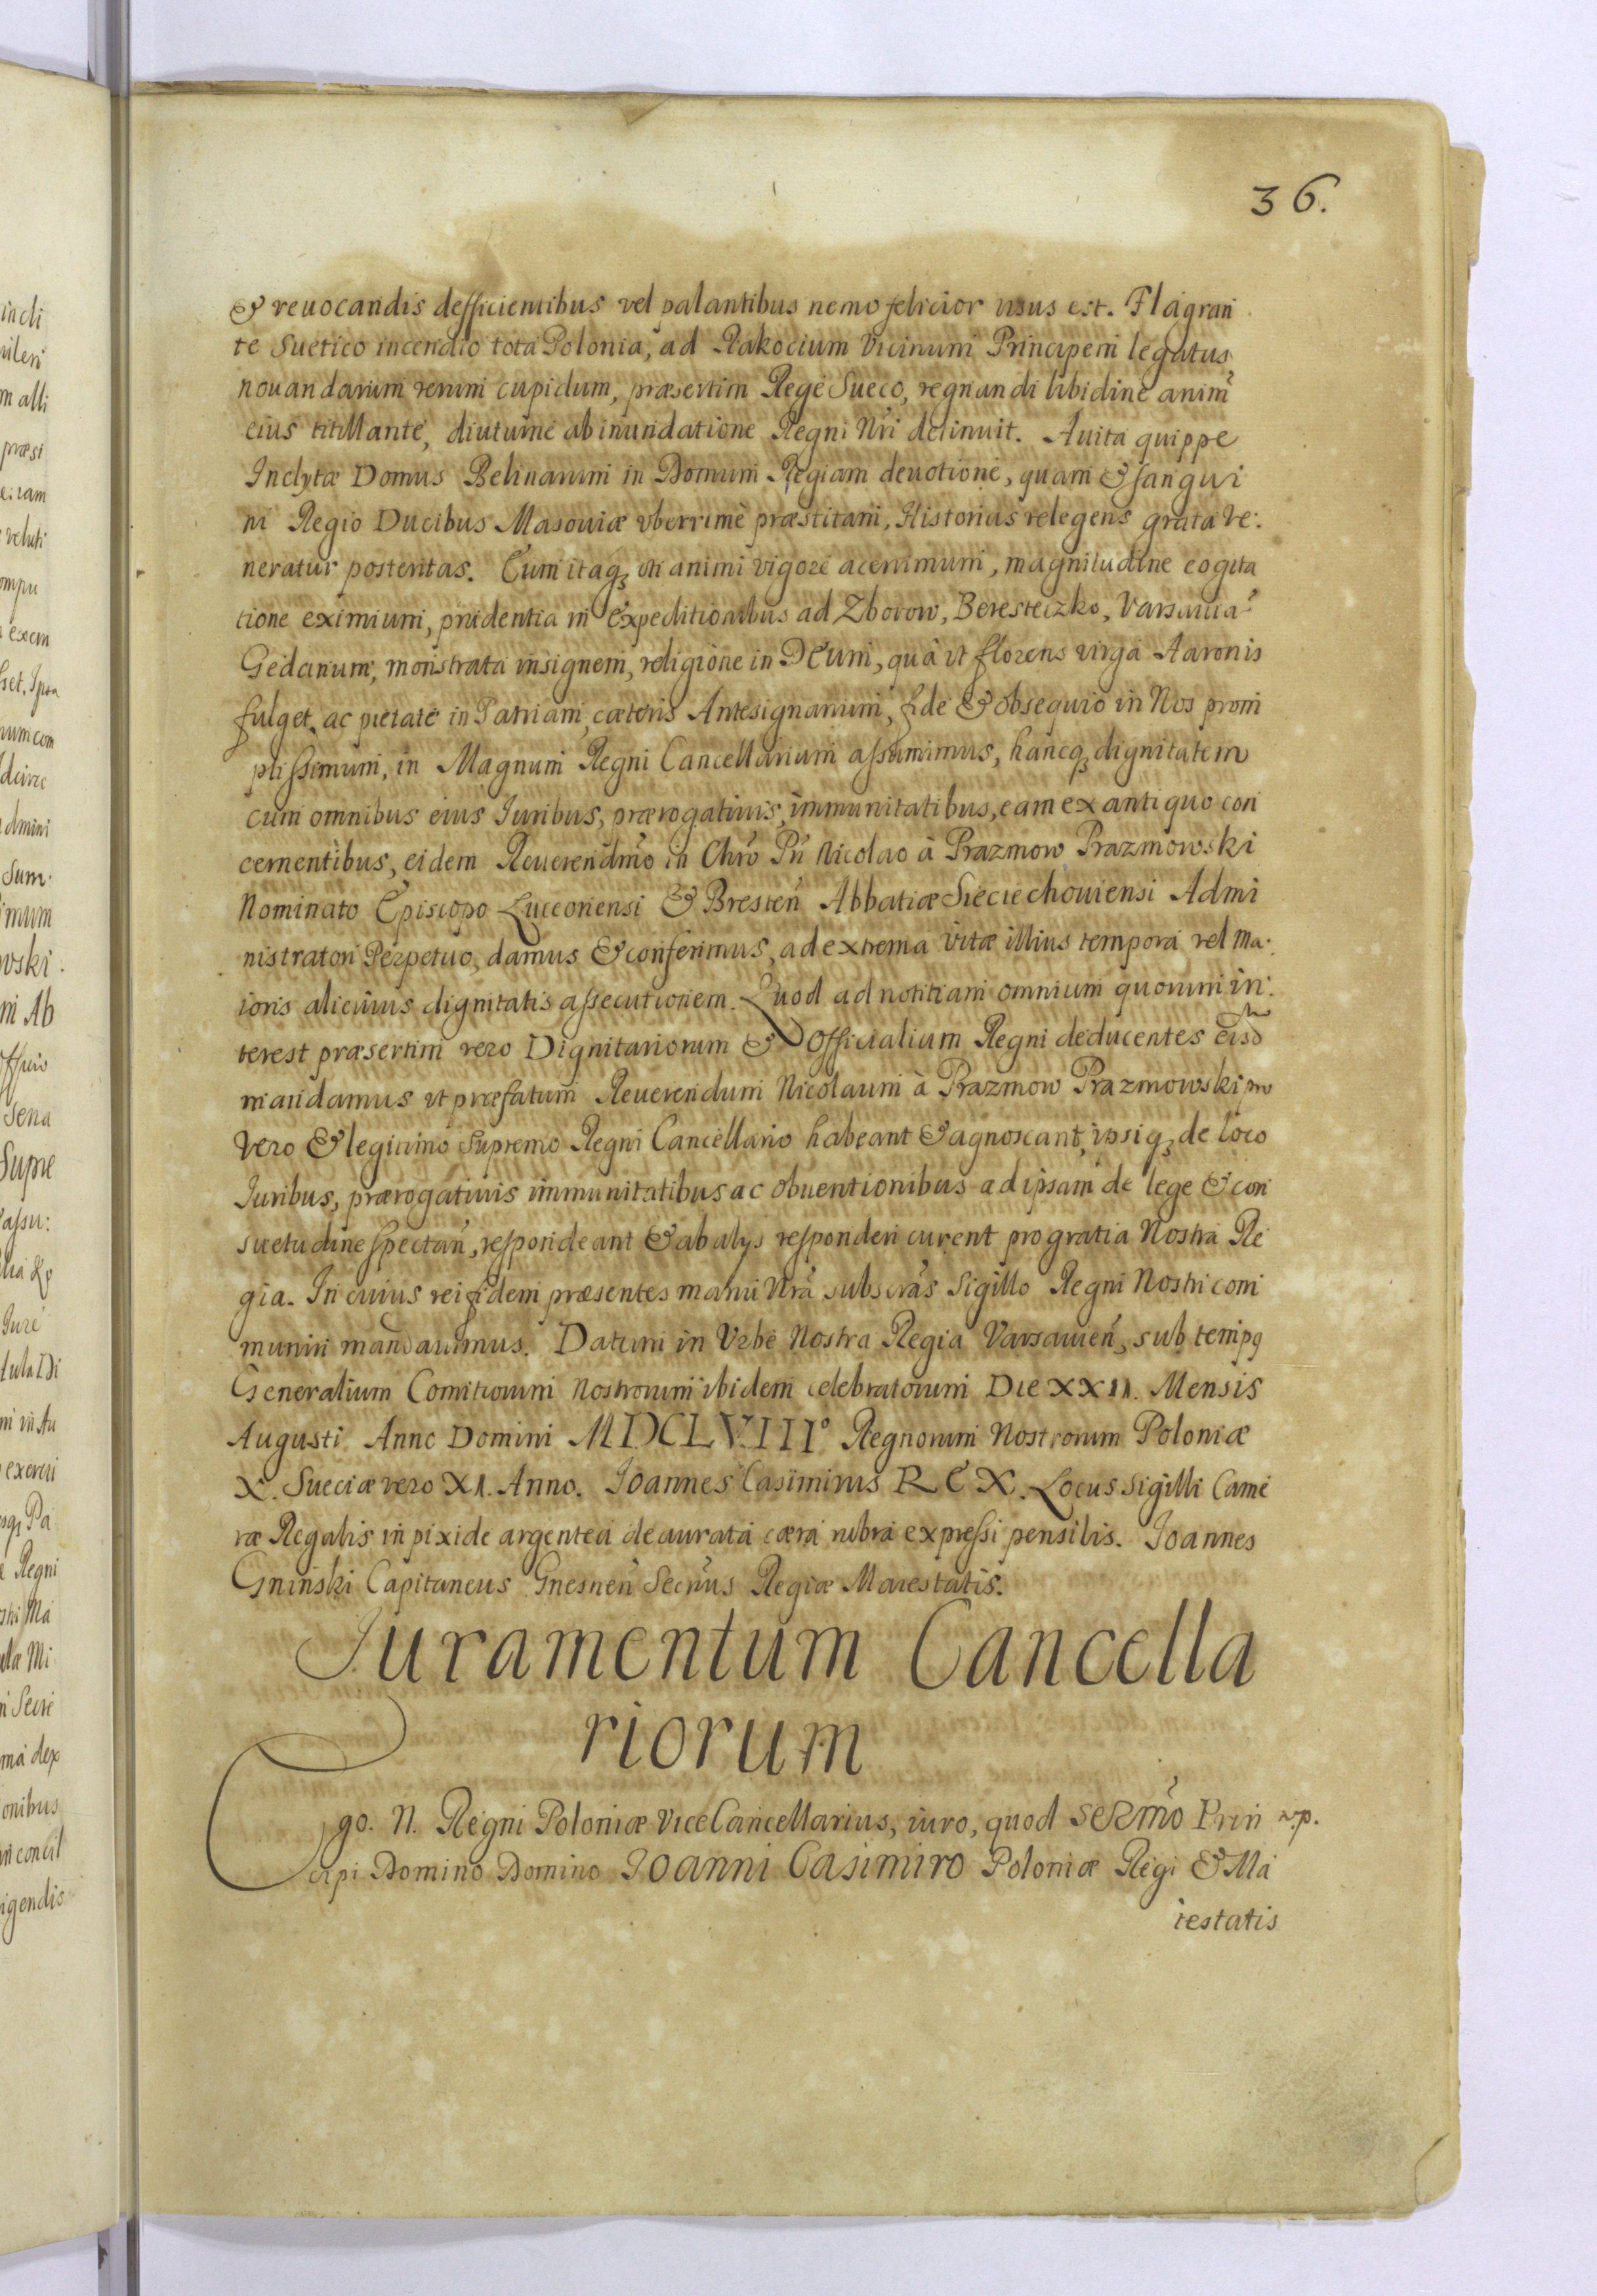 36.
& reuocandis defficientibus vel palantibus nemo felicior visus est. Flagran
te Suetico incendio tota Polonia, ad Rakocium Vicinum Principem legatus,
nouandarum rerum cupidum, præsertim Rege Sueco, regnandi libidine anim̃
eius titillante, diutine ab inundatione Regni Nr̃i detinuit. Auita quippe
Inclytæ Domus Belinarum in Domum Regiam deuotione, quam & sangui
ni Regio Ducibus Masouiæ vberrimè præstitam, Historias relegens grata ve:
neratur posteritas. Cum itaq, animi vigore acerrimum, magnitudine cogita
tione eximium, prudentia in expeditionibus ad Zborow, Beresteczko, Varsauia
Gedanum, monstrata insignem, religione in Deum, quâ vt florens virga Aaronis
fulget, ac pietate in Patriam, cæteris Antesignanum, fide & obsequio in Nos prom
ptissimum, in Magnum Regni Cancellarium assumimus, hancq, dignitatem
cum omnibus eius Iuribus, prærogatiuis, immunitatibus, eam ex antiquo con
cernentibus, eidem Reuerendm̃o in Chr̃o Pñ Nicolao à Prazmow Prazmowski
Nominato Episcopo Luceoriensi & Bresteñ Abbatiæ Sieciechouiensi Admi
nistratori Perpetuo, damus & conferimus, ad extrema vitæ illius tempora vel ma.
ioris alicuius dignitatis assecutionem. Quod ad notitiam omnium quorum in.
terest præsertim vero Dignitariorum & Officialium Regni deducentes eisd
mandamus vt præfatum Reuerendum Nicolaum à Prazmow Prazmowski pro
vero & legitimo Supremo Regni Cancellario habeant & agnoscant, ipsiq, de loco
Iuribus, prærogatiuis immunitatibus ac obuentionibus ad ipsam de lege & con
suetudine spectañ, respondeant & ab alys responderi curent pro gratia Nostra Re
gia. In cuius rei fidem præsentes manu Nr̃a subscr̃as Sigillo Regni Nostri com
muniri mandauimus. Datum in Vrbe Nostra Regia Varsauieñ, sub tempq
Generalium Comitiorum Nostrorum ibidem celebratorum Die XXII. Mensis
Augusti Anno Domini MDCLVIII° Regnorum Nostrorum Poloniæ
X. Sueciæ vero XI. Anno. Ioannes Casimirus REX. Locus Sigilli Came
ræ Regalis in pixide argentea deaurata cæra rubra expressi pensilis. Ioannes
Gninski Capitaneus Gnesneñ Secr̃us Regiæ Maiestatis.
Iuramentum Cancella
riorum
Ego. N. Regni Poloniæ ViceCancellarius, iuro, quod Serm̃o Prin
cipi Domino Domino Ioanni Casimiro Poloniæ Regi & Ma
iestatis